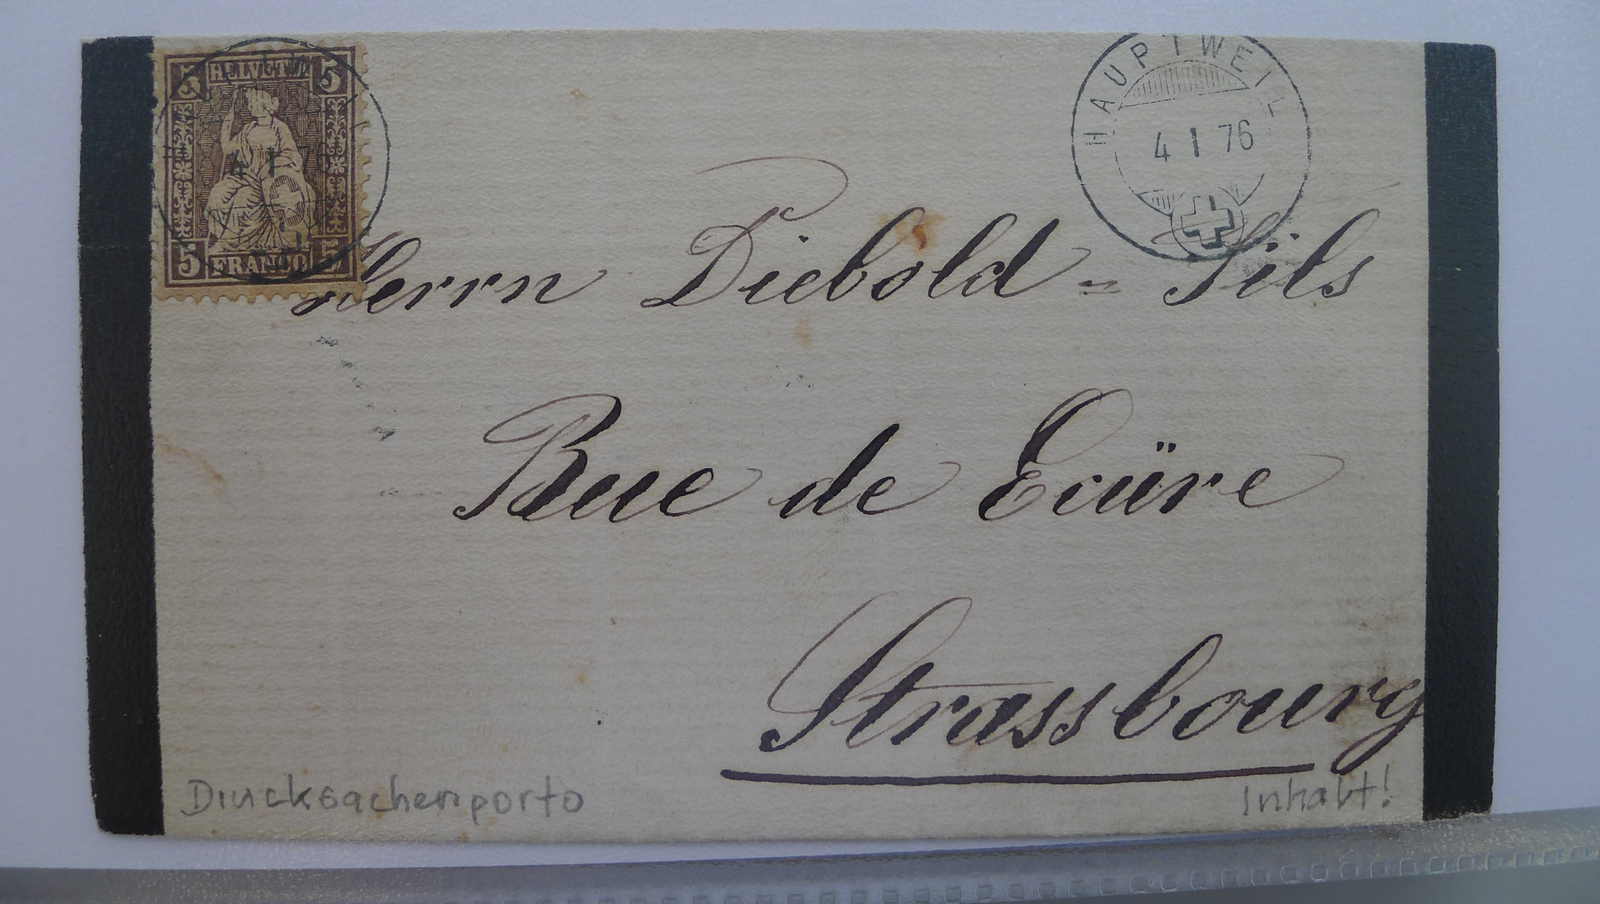 5 HELVETIA 5
5 FRANCO 5
HAUPTWEIL
4 I 76
Herrn Diebold = Fils
Rue de Ecüre
Strassbourg
Drucksachenporto
Inhalt!